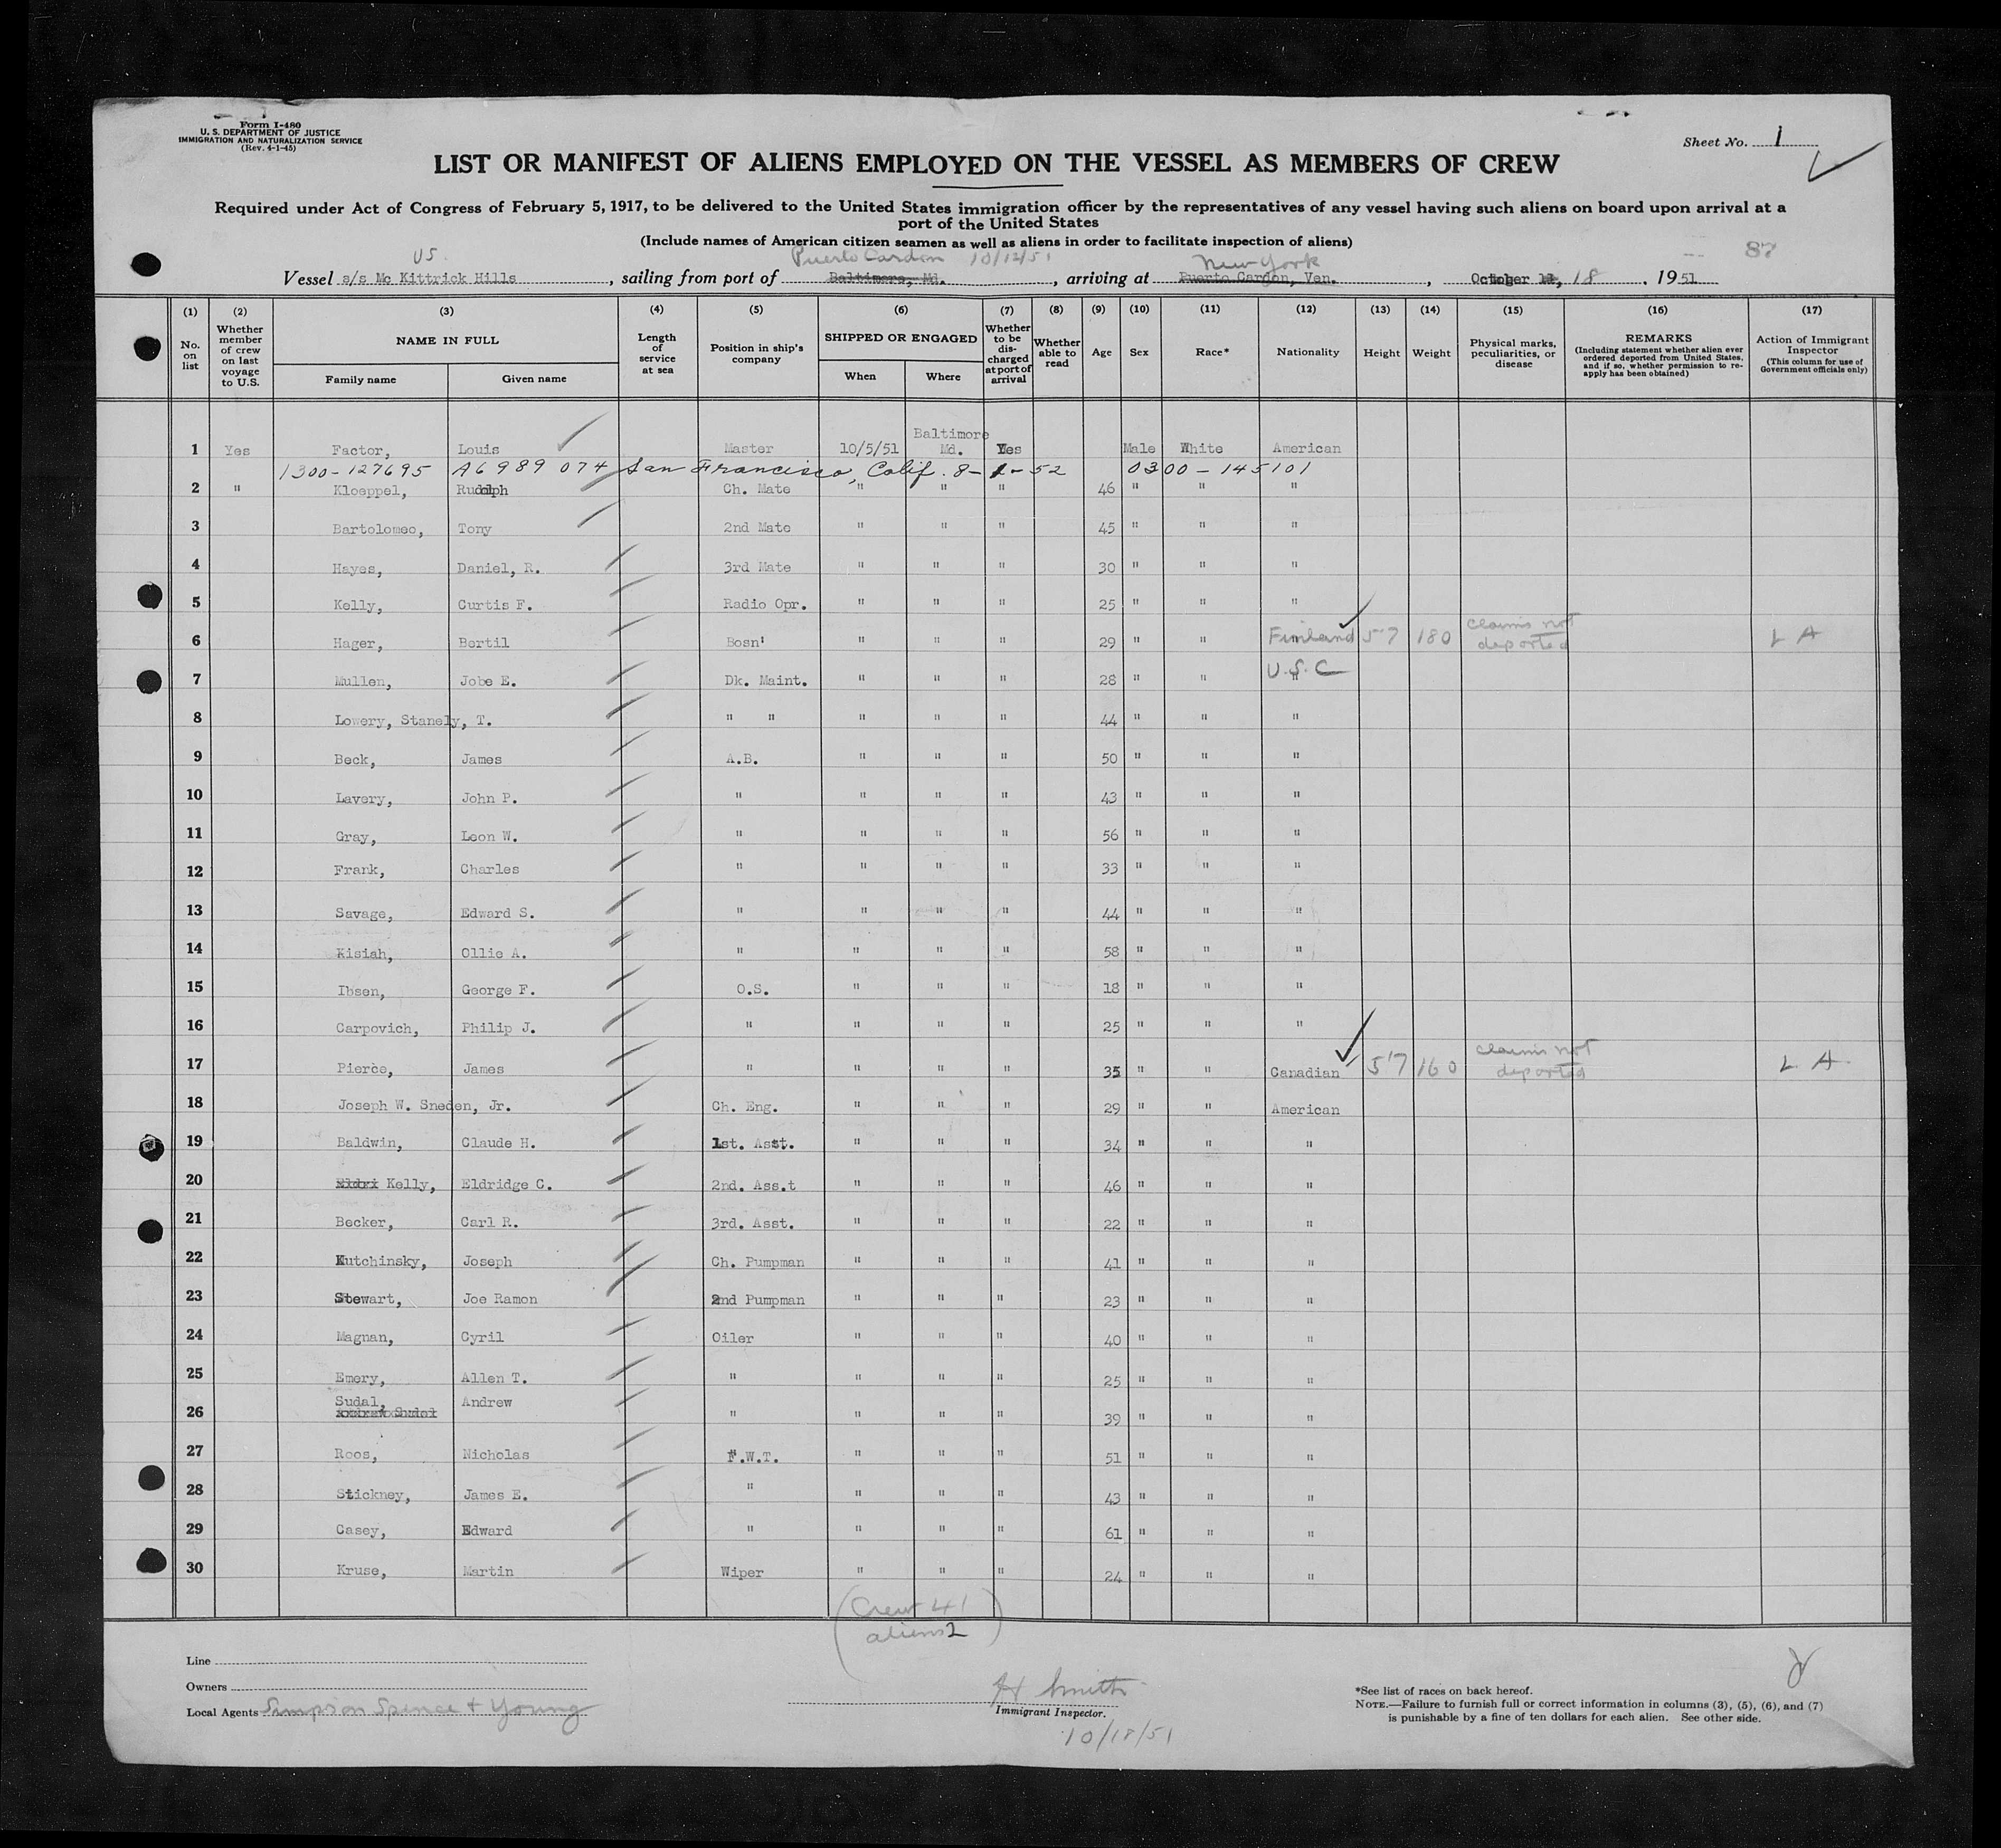 Form I-480
U. S. DEPARTMENT OF JUSTICE
IMMIGRATION AND NATURALIZATION SERVICE
(Rev. 4-1-45)
Sheet No. 1
LIST OR MANIFEST OF ALIENS EMPLOYED ON THE VESSEL AS MEMBERS OF CREW
Required under Act of Congress of February 5, 1917, to be delivered to the United States immigration officer by the representatives of any vessel having such aliens on board upon arrival at a
port of the United States
(Include names of American citizen seamen as well as aliens in order to facilitate inspection of aliens)
US Puerto Cardon 10/12/51 New York 87
Vessel s/s Mc Kittrick Hills, sailing from port of Baltimore, Md., arriving at Puerto Cardon, Ven., October 18, 1951
(1) No. on list
(2) Whether member of crew on last voyage to U.S.
(3) NAME IN FULL Family name Given name
(4) Length of service at sea
(5) Position in ship's company
(6) SHIPPED OR ENGAGED When Where
(7) Whether to be discharged at port of arrival
(8) Whether able to read
(9) Age
(10) Sex
(11) Race*
(12) Nationality
(13) Height
(14) Weight
(15) Physical marks, peculiarities, or disease
(16) REMARKS (Including statement whether alien ever ordered deported from United States, and if so, whether permission to re-apply has been obtained)
(17) Action of Immigrant Inspector (This column for use of Government officials only)
1 Yes Factor, Louis Master 10/5/51 Baltimore Md. Yes Male White American
1300-127695 A6 989 074 San Francisco, Calif. 8-1-52 0300-145101
2 " Kloeppel, Rudolph Ch. Mate " " " 46 " " "
3 Bartolomeo, Tony 2nd Mate " " " 45 " " "
4 Hayes, Daniel, R. 3rd Mate " " " 30 " " "
5 Kelly, Curtis F. Radio Opr. " " " 25 " " "
6 Hager, Bertil Bosn' " " " 29 " " Finland 5'7 180 claims not deported L A
7 Mullen, Jobe E. Dk. Maint. " " " 28 " " U.S.C "
8 Lowery, Stanely, T. " " " " " 44 " " "
9 Beck, James A.B. " " " 50 " " "
10 Lavery, John P. " " " " 43 " " "
11 Gray, Leon W. " " " " 56 " " "
12 Frank, Charles " " " " 33 " " "
13 Savage, Edward S. " " " " 44 " " "
14 Kisiah, Ollie A. " " " " 58 " " "
15 Ibsen, George F. O.S. " " " 18 " " "
16 Carpovich, Philip J. " " " " 25 " " "
17 Pierce, James " " " " 35 " " Canadian 5'7 160 claims not deported L A
18 Joseph W. Sneden, Jr. Ch. Eng. " " " 29 " " American
19 Baldwin, Claude H. 1st. Asst. " " " 34 " " "
20 Eldri Kelly, Eldridge C. 2nd. Ass.t " " " 46 " " "
21 Becker, Carl R. 3rd. Asst. " " " 22 " " "
22 Kutchinsky, Joseph Ch. Pumpman " " " 41 " " "
23 Stewart, Joe Ramon 2nd Pumpman " " " 23 " " "
24 Magnan, Cyril Oiler " " " 40 " " "
25 Emery, Allen T. " " " " 25 " " "
26 Sudal, Andrew " " " " 39 " " "
27 Roos, Nicholas F.W.T. " " " 51 " " "
28 Stickney, James E. " " " " 43 " " "
29 Casey, Edward " " " " 61 " " "
30 Kruse, Martin Wiper " " " 24 " " "
(Crew 41
aliens 2)
Line
Owners
Local Agents Simpson Spence + Young
H Smith
Immigrant Inspector.
10/18/51
*See list of races on back hereof.
NOTE.—Failure to furnish full or correct information in columns (3), (5), (6), and (7)
is punishable by a fine of ten dollars for each alien. See other side.